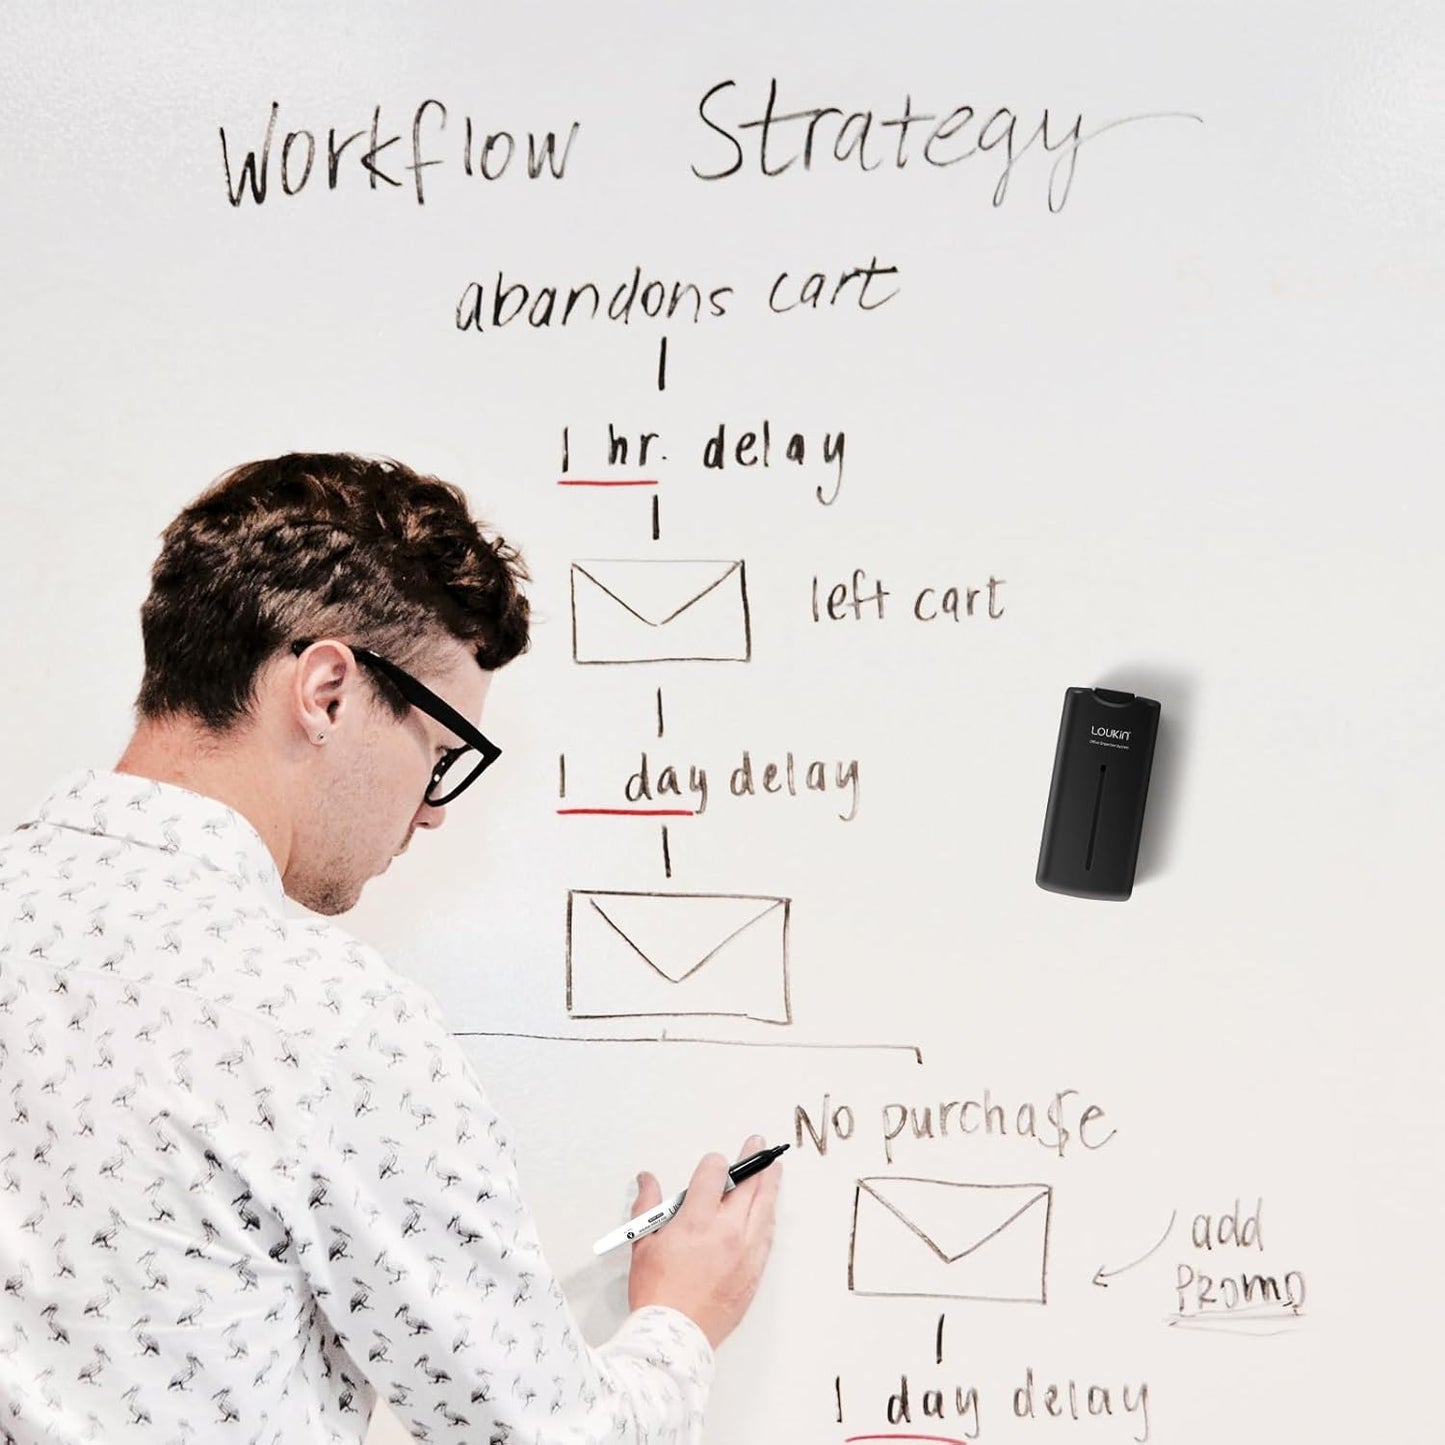 Workflow Strategy
abandons cart
1 hr. delay
left cart
1 day delay
No purcha$e
add
PROMO
1 day delay
LOUKIN
Office Organizer System